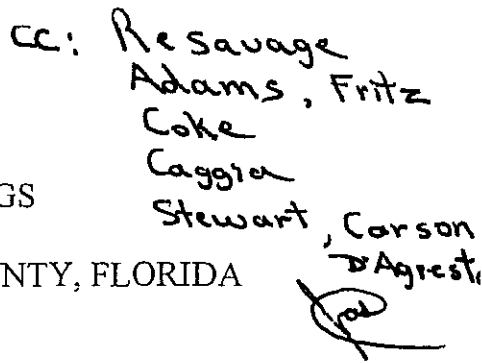 cc: Resavage
Adams, Fritz
Coke
Caggia
GS
Stewart, Carson
D'Agrest
NTY, FLORIDA